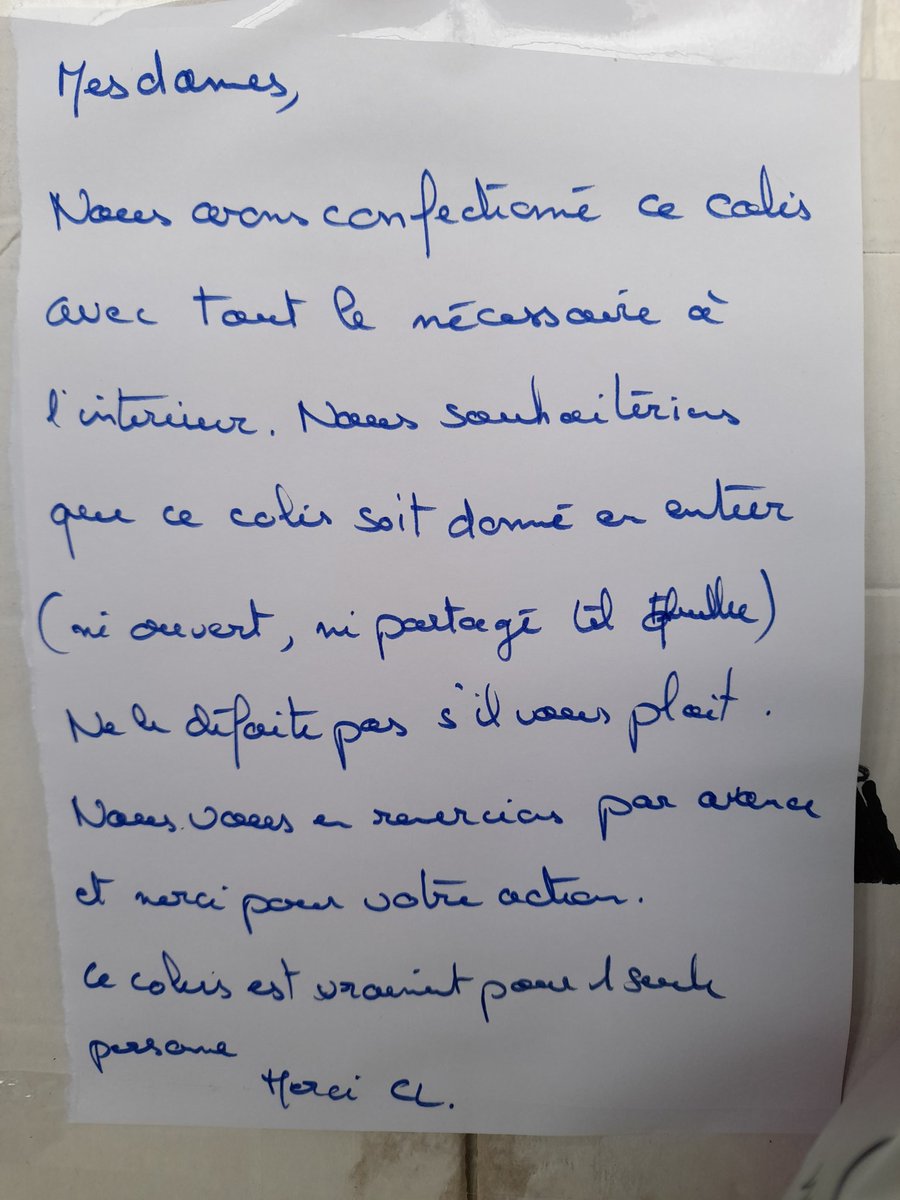 Mesdames,
Nous avons confectionné ce colis
avec tout le nécessaire à
l'intérieur. Nous souhaiterions
que ce colis soit donné en entier
(ni ouvert, ni partagé
Ne le défaite pas s'il vous plait.
Nous vous en remercions par avance
et merci pour votre action.
Ce colis est vraiment pour 1 seule
personne
Merci CL.